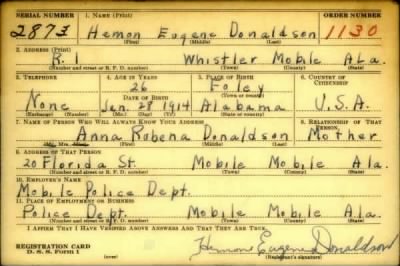 SERIAL NUMBER 1. NAME (Print) ORDER NUMBER
2873 Hemon Eugene Donaldson 1130
(First) (Middle) (Last)
2. ADDRESS (Print)
R. 1 Whistler Mobile Ala.
(Number and street or R. F. D. number) (Town) (County) (State)
3. TELEPHONE 4. AGE IN YEARS 5. PLACE OF BIRTH 6. COUNTRY OF CITIZENSHIP
26 Foley
DATE OF BIRTH (Town or county)
None Jan. 28 1914 Alabama U.S.A.
(Exchange) (Number) (Mo.) (Day) (Yr.) (State or country)
7. NAME OF PERSON WHO WILL ALWAYS KNOW YOUR ADDRESS 8. RELATIONSHIP OF THAT PERSON
Anna Robena Donaldson Mother
(Mr., Mrs., Miss) (First) (Middle) (Last)
9. ADDRESS OF THAT PERSON
20 Florida St. Mobile Mobile Ala.
(Number and street or R. F. D. number) (Town) (County) (State)
10. EMPLOYER'S NAME
Mobile Police Dept.
11. PLACE OF EMPLOYMENT OR BUSINESS
Police Dept. Mobile Mobile Ala.
(Number and street or R. F. D. number) (Town) (County) (State)
I AFFIRM THAT I HAVE VERIFIED ABOVE ANSWERS AND THAT THEY ARE TRUE.
REGISTRATION CARD Hemon Eugene Donaldson
D. S. S. Form 1 (over) (Registrant's signature)